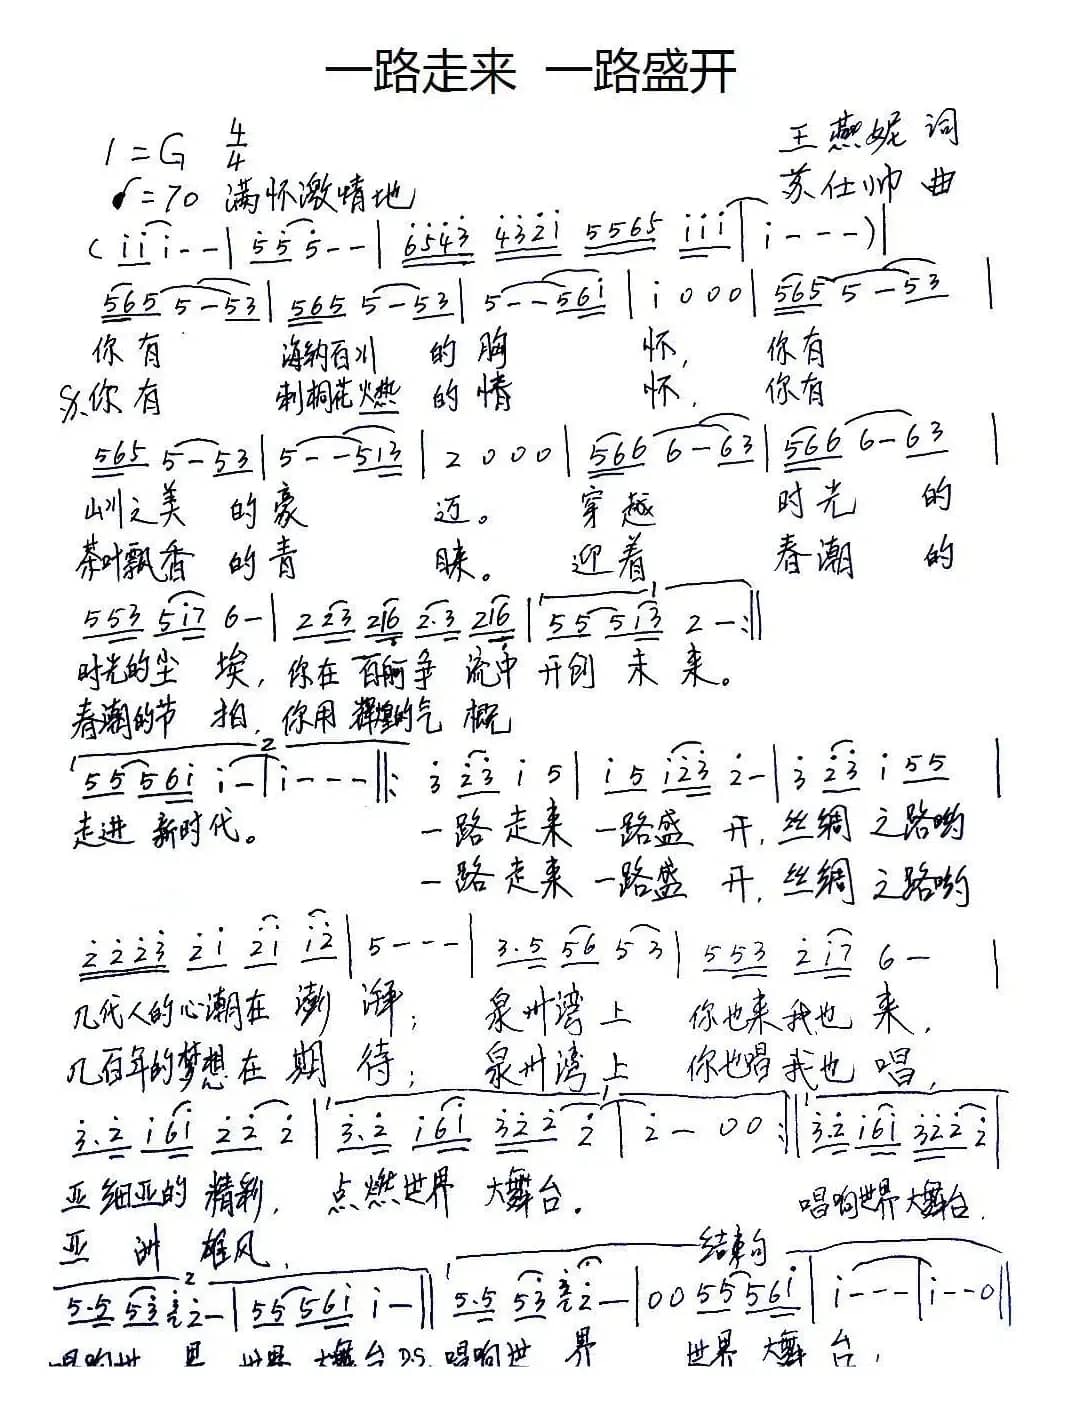 一路走来 一路盛开
1=G 4/4
王燕妮 词
♩=70 满怀激情地
苏仕帅 曲
( i i i - - | 5 5 5 - - | 6 5 4 3 4 3 2 i 5 5 6 5 i i i | i - - - ) |
5 6 5 5 - 5 3 | 5 6 5 5 - 5 3 | 5 - - 5 6 i | i 0 0 0 | 5 6 5 5 - 5 3 |
你有 海纳百川 的胸 怀, 你有
你有 刺桐花燃 的情 怀, 你有
5 6 5 5 - 5 3 | 5 - - 5 1 3 | 2 0 0 0 | 5 6 6 6 - 6 3 | 5 6 6 6 - 6 3 |
山川之美 的豪 迈。 穿越 时光 的
茶叶飘香 的青 睐。 迎着 春潮 的
5 5 3 5 i 7 6 - | 2 2 3 2 1 6 2 · 3 2 1 6 | 1 5 5 5 i 3 2 - :||
时光的尘 埃, 你在 百舸争 流中 开创 未来。
春潮的节 拍, 你用 辉煌的气 概
2 5 5 5 6 i i - | i - - - ||: 3 2 3 i 5 | i 5 i 2 3 2 - | 3 2 3 i 5 5 |
走进 新时代。 一路走来 一路盛 开, 丝绸 之路哟
一路走来 一路盛 开, 丝绸 之路哟
2 2 2 3 2 i 2 i i 2 | 5 - - - | 3 · 5 5 6 5 3 | 5 5 3 2 i 7 6 - |
几代人的心潮在 澎 湃; 泉州湾上 你也来我也 来,
几百年的梦想在 期 待; 泉州湾上 你也唱我也 唱,
3 · 2 i 6 i 2 2 2 | 1 3 · 2 i 6 i 3 2 2 2 | 2 - 0 0 :|| 3 · 2 i 6 i 3 2 2 2 |
亚细亚的 精彩, 点燃世界 大舞台。 唱响世界大舞台,
亚 洲 雄风,
结束句
2 5 · 5 5 3 2 - | 5 5 5 6 i i - || 1 5 · 5 5 3 2 - | 0 0 5 5 5 6 i | i - - - | i - - 0 ||
唱响世 界 世界 大舞台 D.S. 唱响世 界 世界 大舞 台,